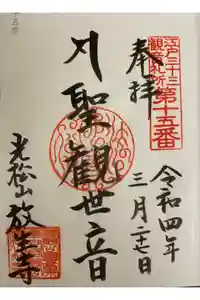 江戸三十三
観音札所
第十五番
奉拝
令和四年
三月
聖觀世音
光松山放生寺